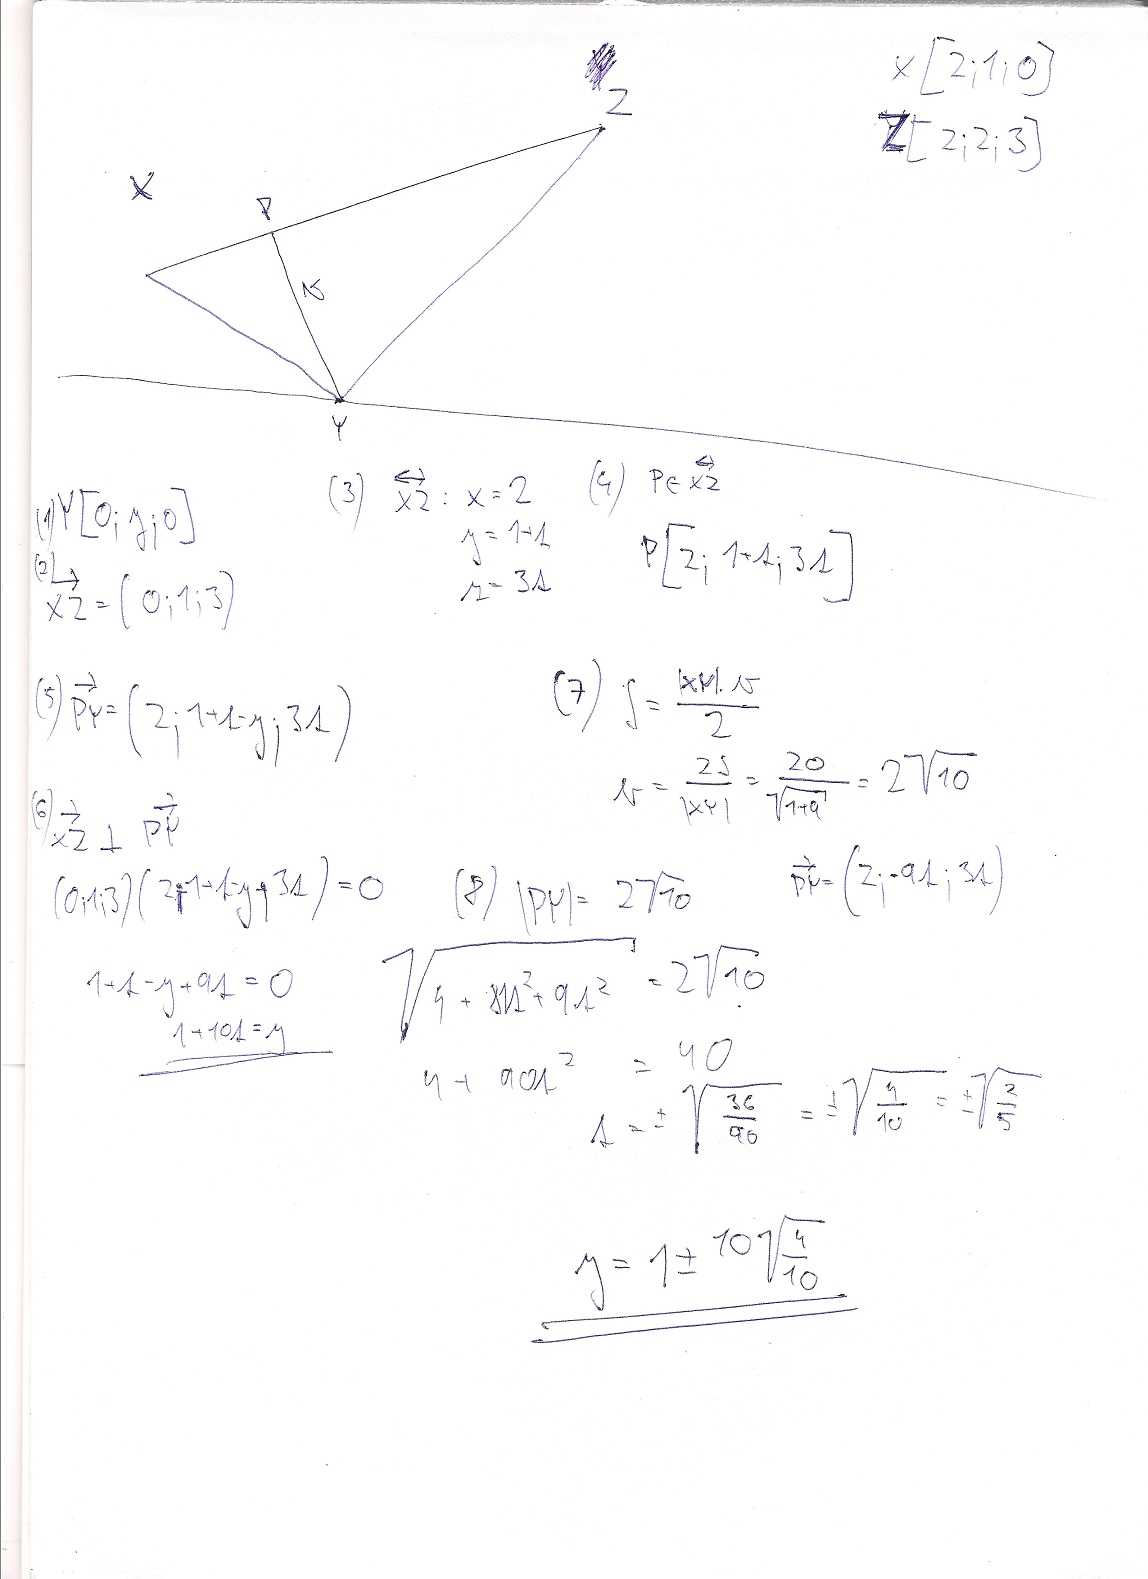 X[2;1;0]
Z[2;2;3]
Z
X
P
v
Y
(1) Y[0;y;0]
(2) XZ=(0;1;3)
(3) XZ: x=2
y=1+s
z=3s
(4) P∈XZ
P[2;1+s;3s]
(5) PY=(2;1+s-y;3s)
(6) XZ ⊥ PY
(0;1;3)(2;1+s-y;3s)=0
1+s-y+9s=0
1+10s=y
(7) S=|XY|.v/2
v=2S/|XY|=20/√1+9=2√10
PY=(2;-9s;3s)
(8) |PY|=2√10
√4+81s²+9s²=2√10
4+90s²=40
s=±√36/90=±√4/10=±√2/5
y=1±10√4/10